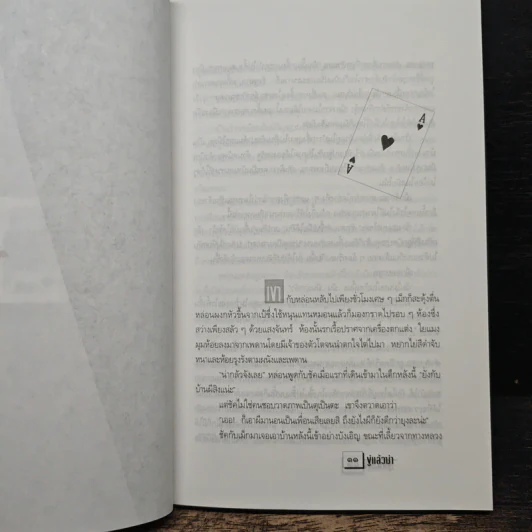 A
A
เขา กับหล่อนหลับไปเพียงชั่วโมงเศษ ๆ เม็กก็สะดุ้งตื่น
หล่อนผงกหัวขึ้นจากเป้ซึ่งใช้หนุนแทนหมอนแล้วก็มองกราดไปรอบ ๆ ห้องซึ่ง
สว่างเพียงสลัว ๆ ด้วยแสงจันทร์ ห้องนั้นรกเรื้อปราศจากเครื่องตกแต่ง ใยแมง
มุมห้อยลงมาจากเพดานโดยมีเจ้าของตัวโตจนน่าตกใจไต่ไปมา หยากไย่สีดำจับ
หนาและห้อยรุงรังตามผนังและเพดาน
"น่ากลัวจังเลย" หล่อนพูดกับชัคเมื่อแรกที่เดินเข้ามาในตึกหลังนี้ "ยังกับ
บ้านผีสิงแน่ะ"
แต่ชัคไม่ใช่คนชอบวาดภาพเป็นตุเป็นตะ เขาจึงตวาดเอาว่า
"เออ! ก็เอาผีมานอนเป็นเพื่อนเสียเลยสิ ถึงยังไงผีก็ยังดีกว่ายุงละน่ะ"
ชัคกับเม็กมาเจอเอาบ้านหลังนี้เข้าอย่างบังเอิญ ขณะที่เลี้ยวจากทางหลวง
๑๑ ขู่แล้วฆ่า